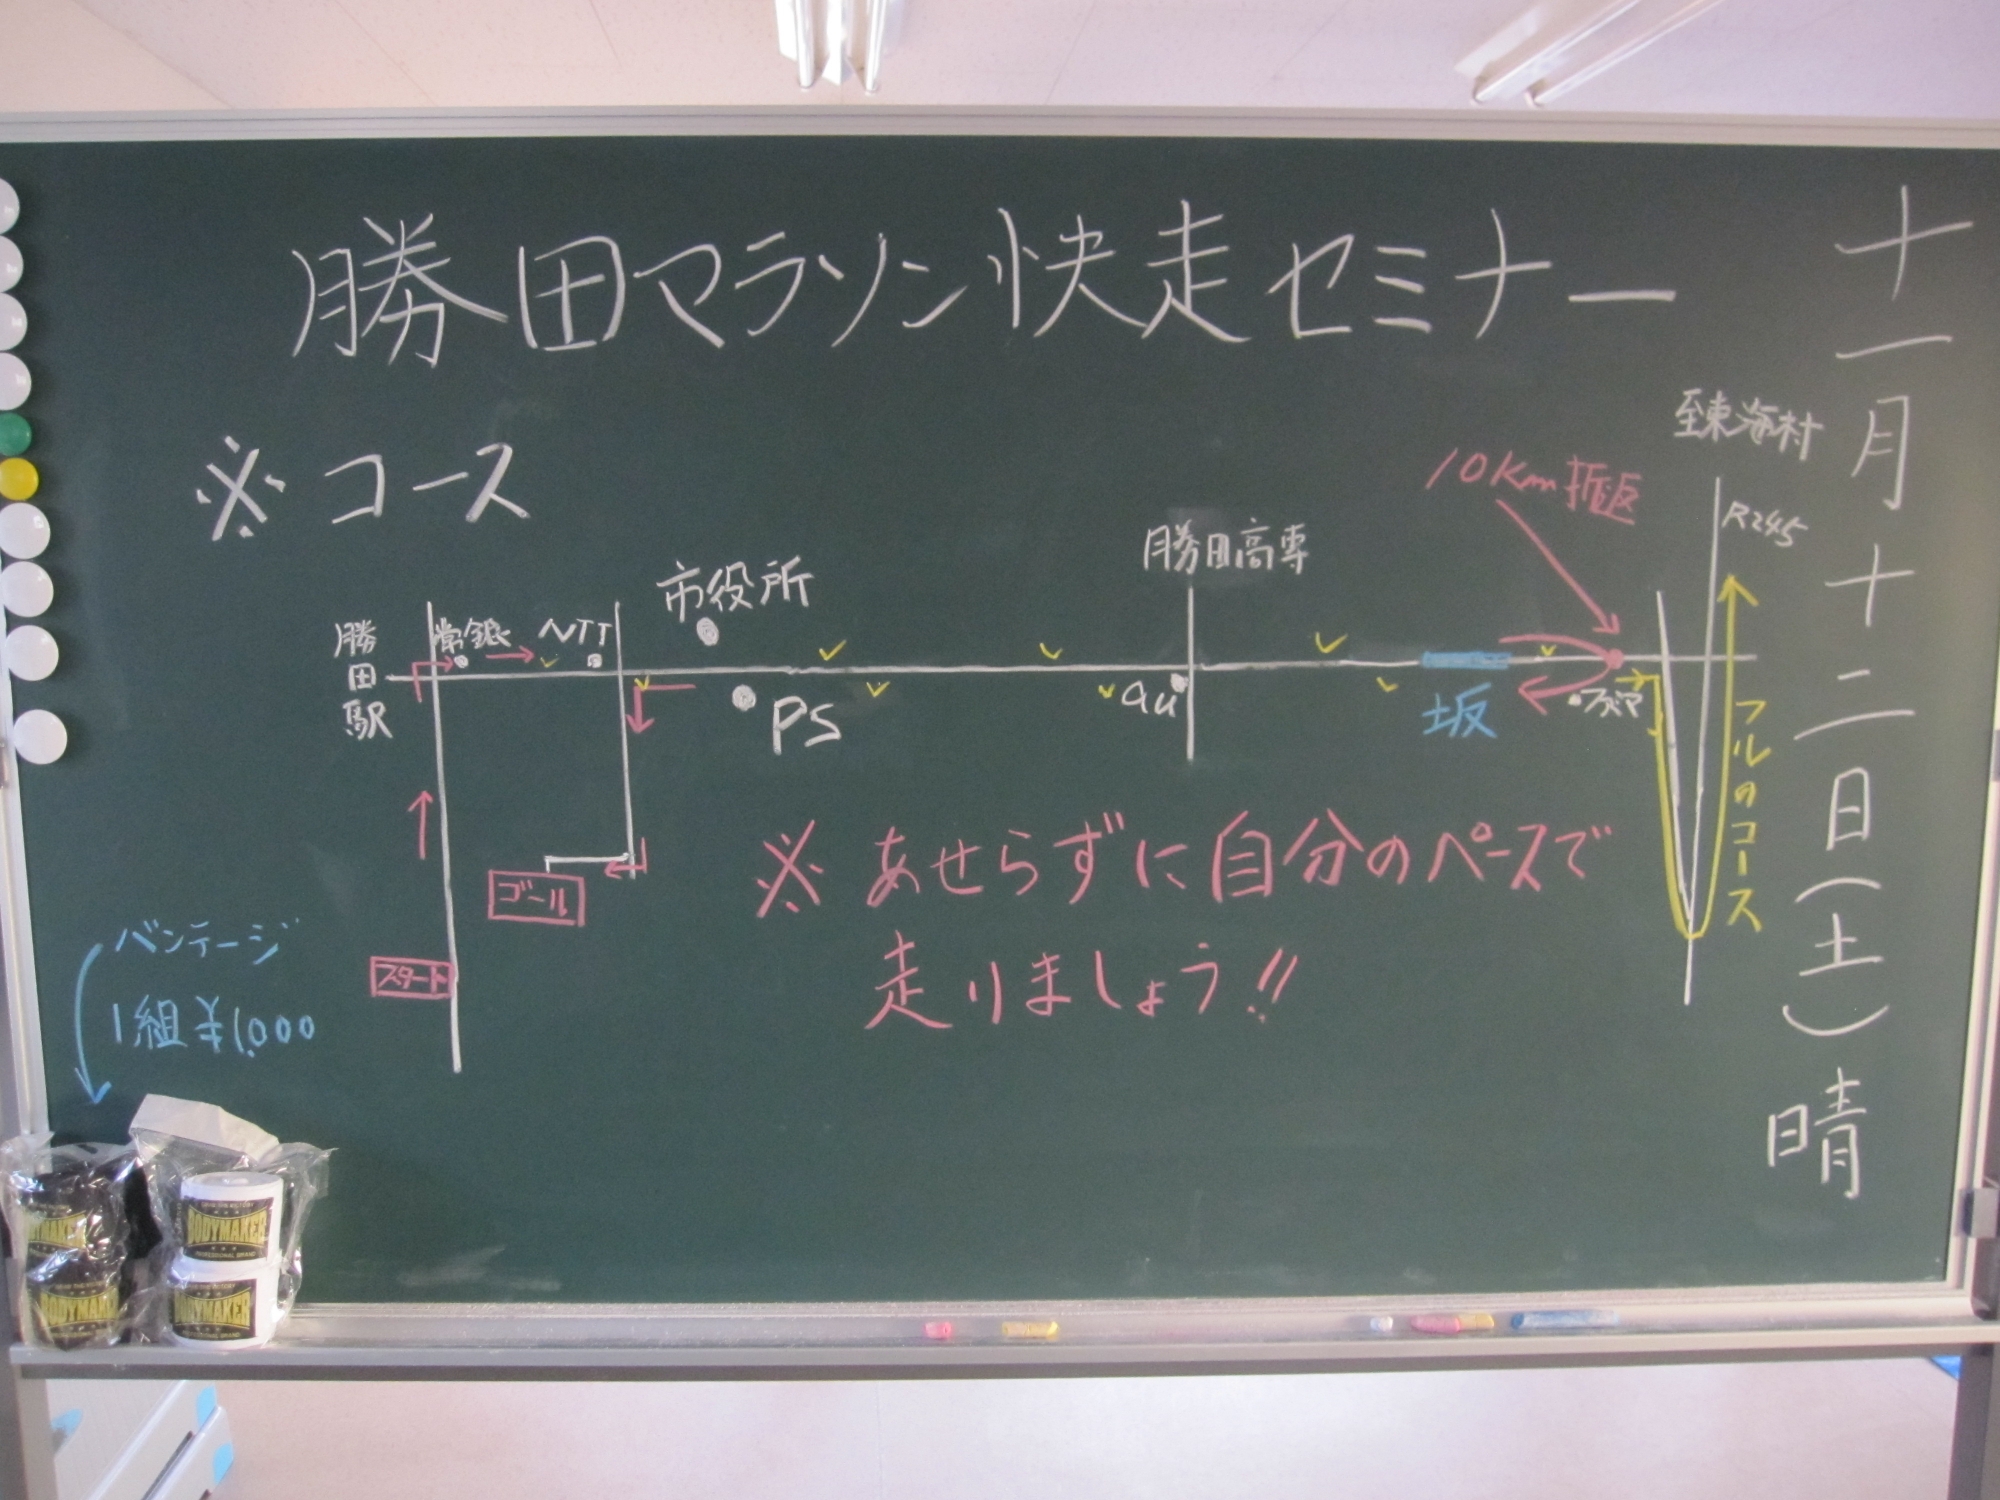 勝田マラソン快走セミナー
十一月十二日(土)晴
※コース
至東海村
R245
10Km折返
勝田高専
市役所
勝田駅
常銀
NTT
PS
au
坂
フルのコース
ゴール
スタート
※あせらずに自分のペースで
走りましょう!!
バンテージ
1組¥1,000
BODYMAKER
BODYMAKER
PROFESSIONAL BRAND
BODYMAKER
BODYMAKER